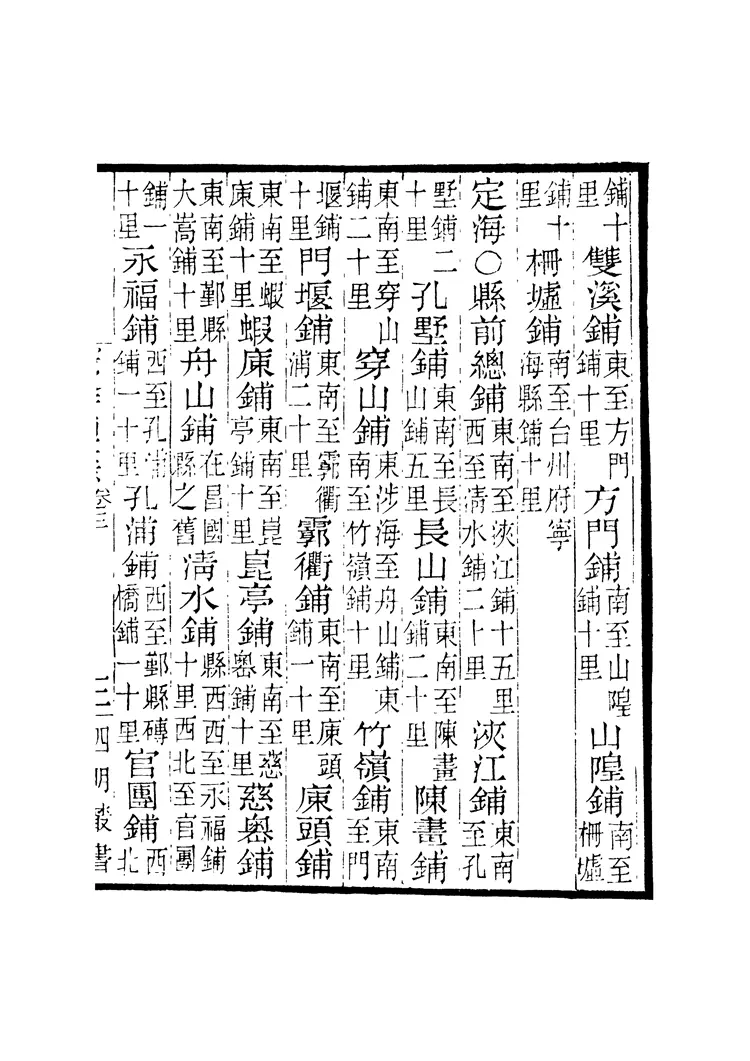 鋪十里雙溪鋪東至方門鋪十里方門鋪南至山隍鋪十里山隍鋪南至柵墟
鋪十里柵墟鋪南至台州府寧海縣鋪十里
定海○縣前總鋪東南至浹江鋪十五里西至清水鋪二十里浹江鋪東南至孔
墅鋪二十里孔墅鋪東南至長山鋪五里長山鋪東南至陳畫鋪二十里陳畫鋪
東南至穿山鋪二十里穿山鋪東涉海至舟山鋪東南至竹嶺鋪十里竹嶺鋪東南至門
堰鋪十里門堰鋪東南至霩衢浦二十里霩衢鋪東南至康頭鋪一十里康頭鋪
東南至蝦康鋪十里蝦康鋪東南至崑亭鋪十里崑亭鋪東南至慈奧鋪十里慈奧鋪
東南至鄞縣大嵩鋪十里舟山鋪在昌國縣之舊清水鋪縣西西至永福鋪十里西北至官團
鋪一十里永福鋪西至孔浦鋪一十里孔浦鋪西至鄞縣磚橋鋪一十里官團鋪西北
卷三 四明叢書